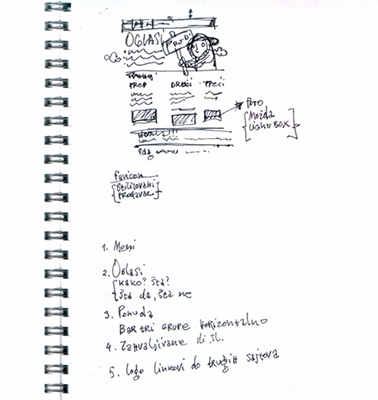 OGLASI
PRODA
DRUGI TREĆI
Pero
Možda
LIGHTBOX
Favicon
Stilizovani
prodavac
1. Meni
2. Oglasi
Kako? Šta?
Šta da, šta ne
3. Ponuda
BAR TRI GRUPE HORIZONTALNO
4. Zahvaljivanje ili sl.
5. Logo linkovi do drugih sajtova